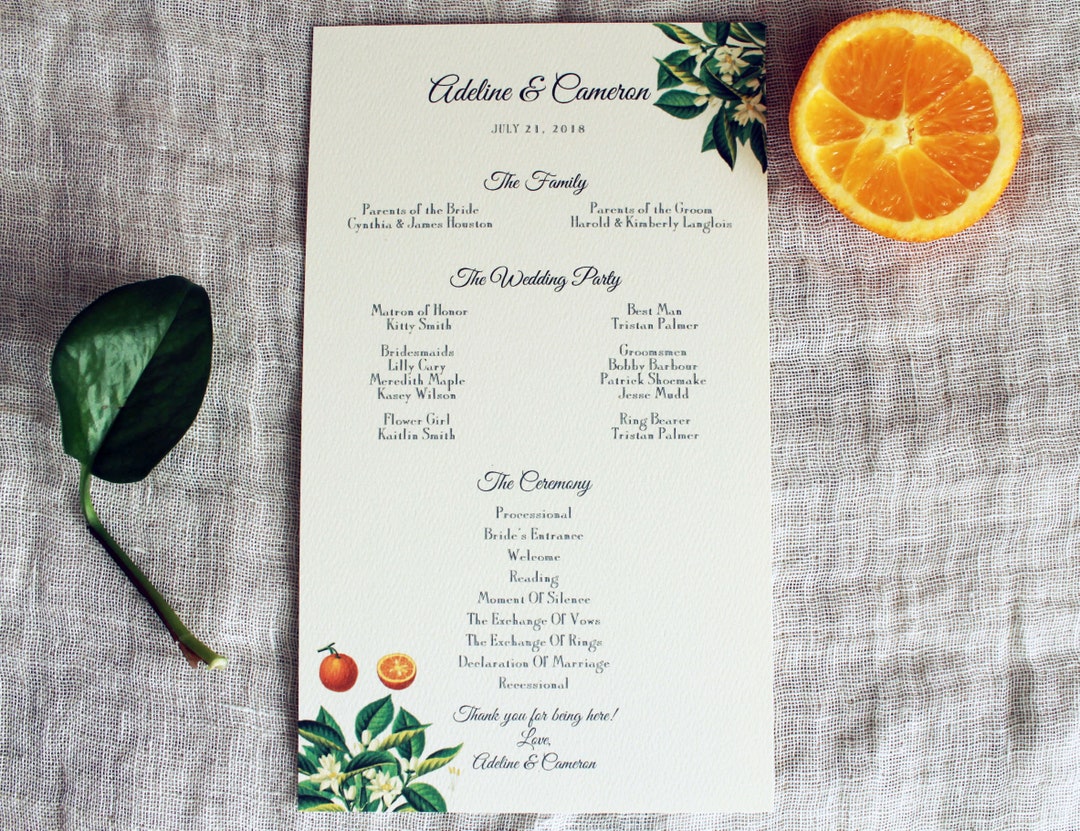 Adeline & Cameron
JULY 21, 2018
The Family
Parents of the Bride
Cynthia & James Houston
Parents of the Groom
Harold & Kimberly Langlois
The Wedding Party
Matron of Honor
Kitty Smith
Bridesmaids
Lilly Cary
Meredith Maple
Kasey Wilson
Flower Girl
Kaitlin Smith
Best Man
Tristan Palmer
Groomsmen
Bobby Barbour
Patrick Shoemake
Jesse Mudd
Ring Bearer
Tristan Palmer
The Ceremony
Processional
Bride's Entrance
Welcome
Reading
Moment Of Silence
The Exchange Of Vows
The Exchange Of Rings
Declaration Of Marriage
Recessional
Thank you for being here!
Love,
Adeline & Cameron